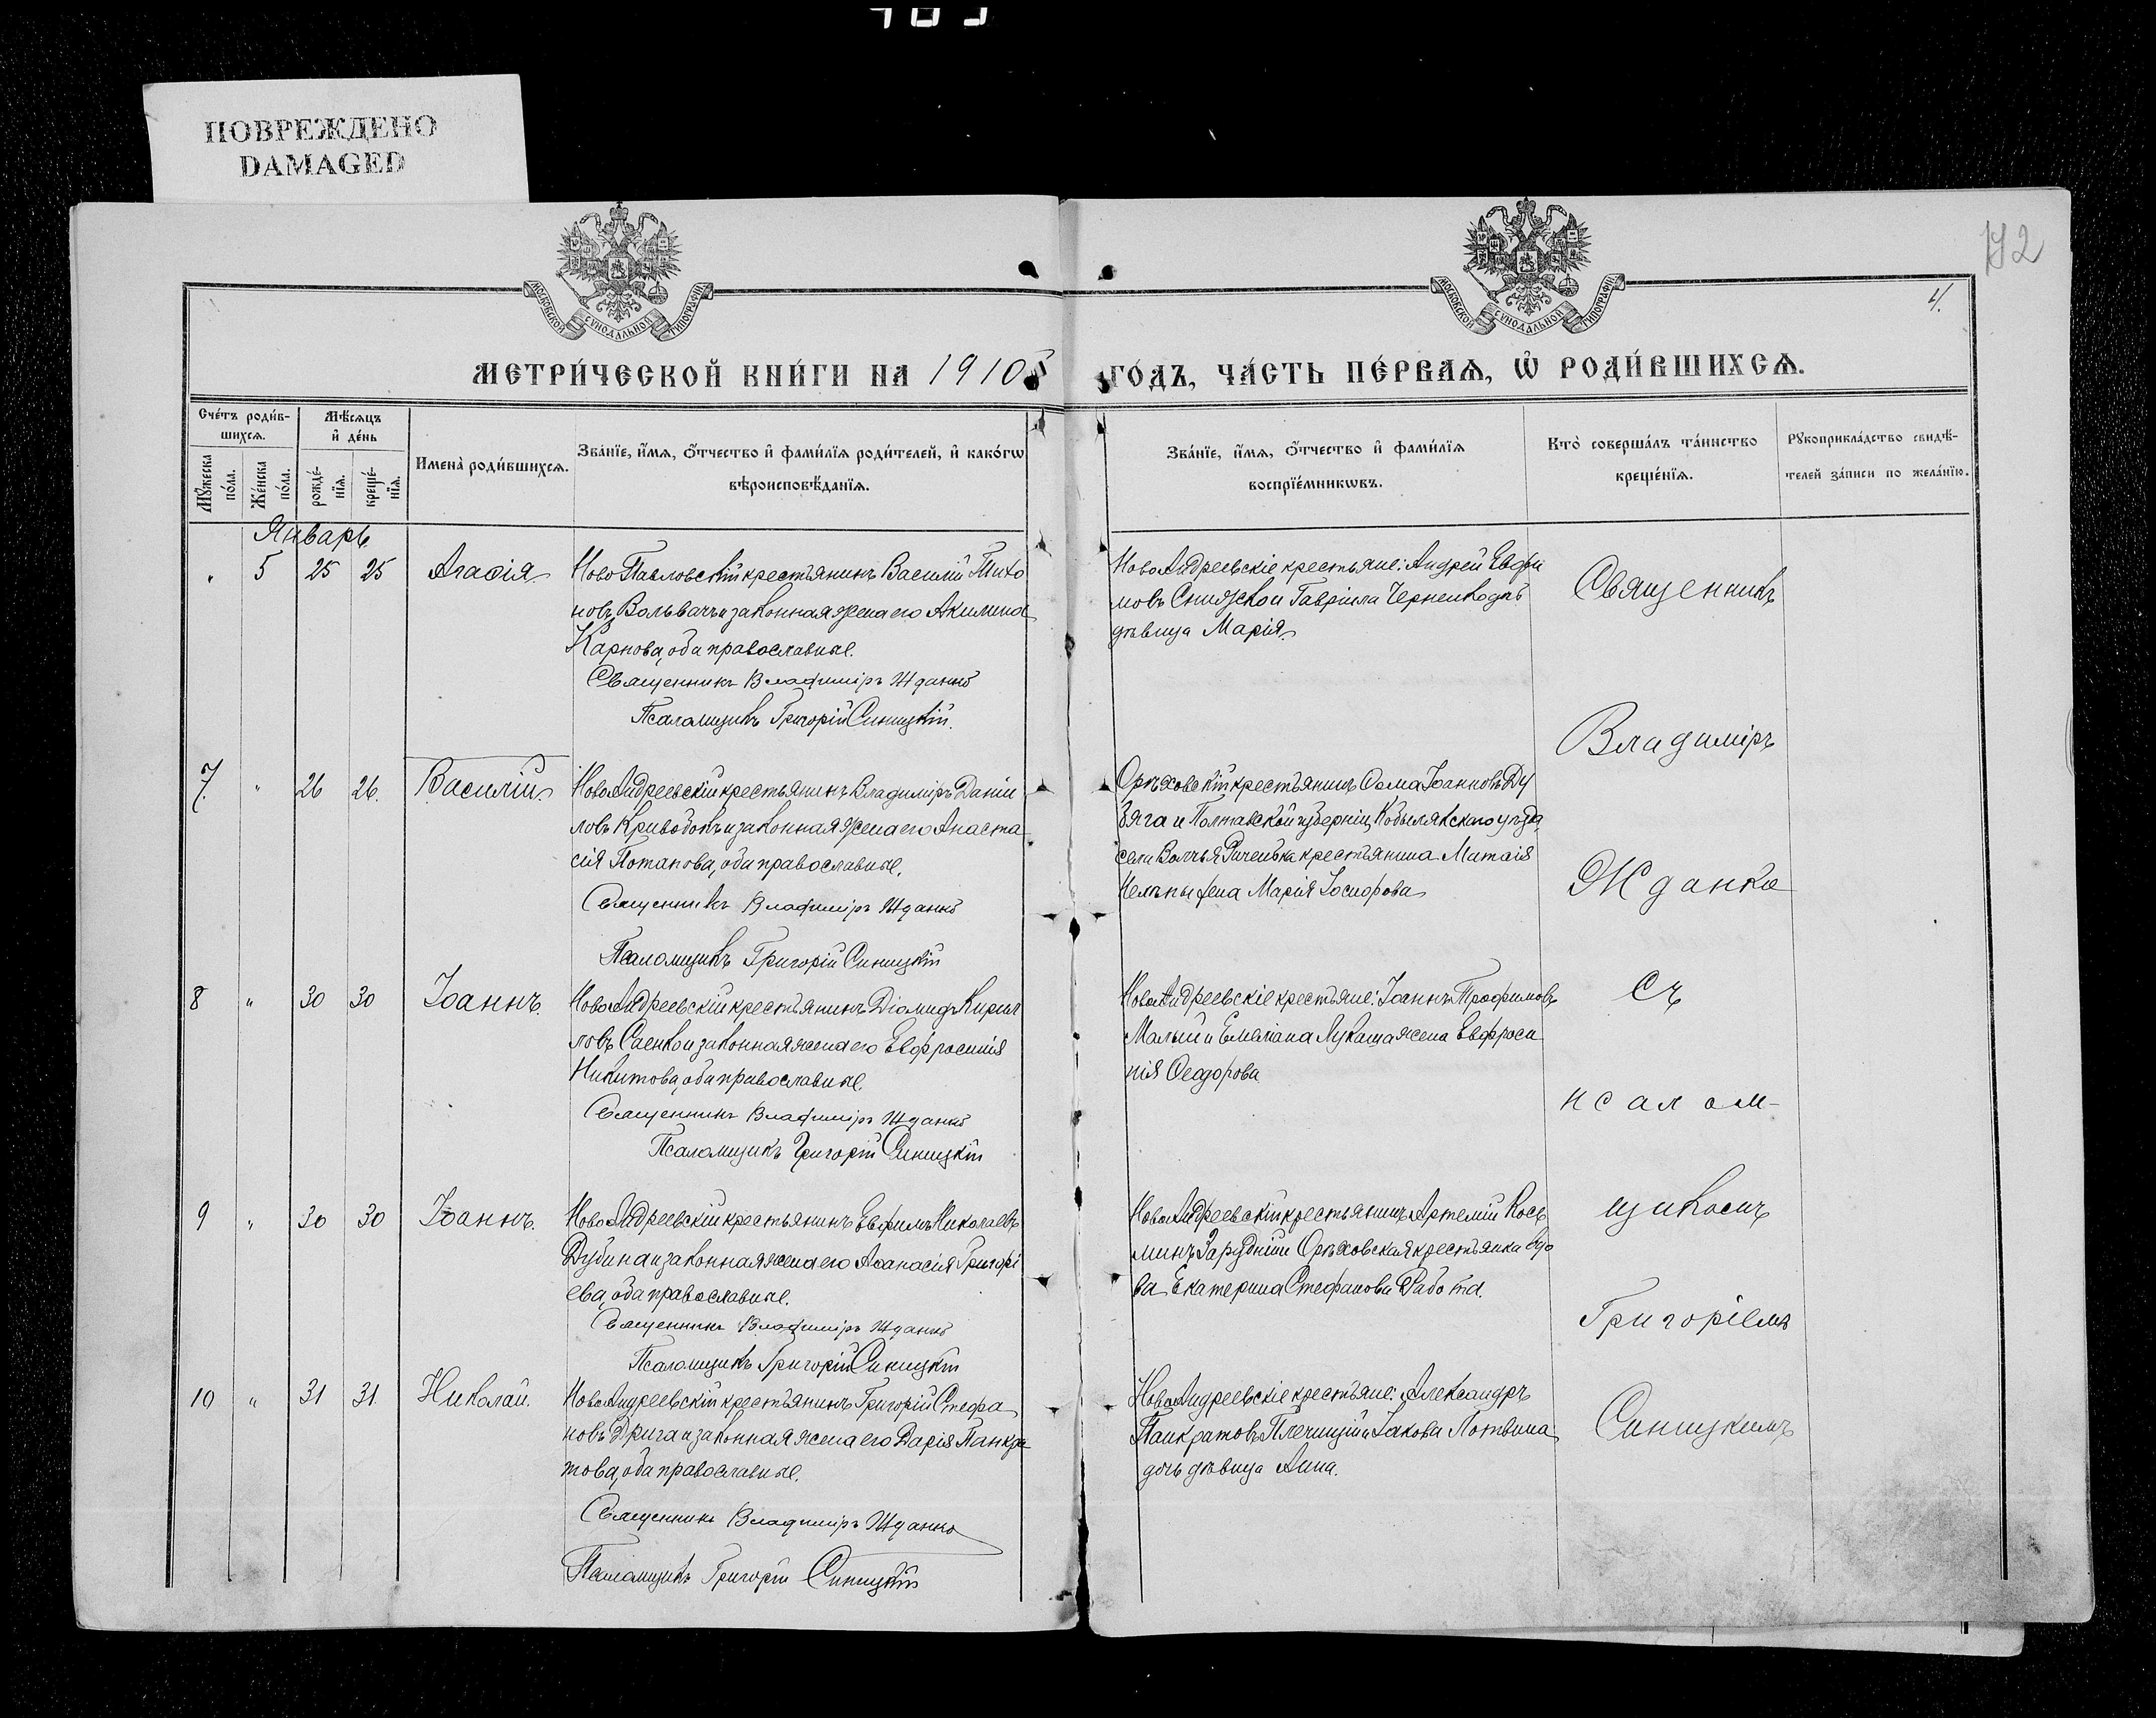 ПОВРЕЖДЕНО
DAMAGED
МОСКОВСКОЙ СѴНОДАЛЬНОЙ ТИПОГРАФІИ
МОСКОВСКОЙ СѴНОДАЛЬНОЙ ТИПОГРАФІИ
4.
МЕТРИ́ЧЕСКОЙ КНИ́ГИ НА 1910й
ГО́ДЪ, ЧА́СТЬ ПЕ́РВАѦ, Ѽ РОДИ́ВШИХСѦ.
Сче́тъ роди́в-
шихсѧ.
Мѣ́сѧцъ
и҆ де́нь
Мꙋ́жеска по́ла.
Же́нска по́ла.
рожде́-нїѧ.
креще́-нїѧ.
Имена̀ роди́вшихсѧ.
Зва́нїе, и҆́мѧ, ѻ҆́тчество и҆ фами́лїѧ роди́телей, и҆ како́гѡ
вѣроисповѣ́данїѧ.
Зва́нїе, и҆́мѧ, ѻ҆́тчество и҆ фами́лїѧ
воспрїе́мникѡвъ.
Кто̀ соверша́лъ та́инство
креще́нїѧ.
Рꙋкоприкла́дство свидѣ́-
телей за́писи по жела́нїю.
Январь
" 5 25 25 Агаѳія
НовоПавловскій крестьянинъ Василій Тихо
новъ Вольвачъ и законная жена его Акилина
Карпова, оба православные.
Священникъ Владиміръ Жданко
Псаломщикъ Григорій Синицкій.
НовоАндреевскіе крестьяне: Андрей Евфи
мовъ и Гавріила дочь
дѣвица Марія.
7. " 26 26. Василій.
НовоАндреевскій крестьянинъ Владиміръ Даніи
ловъ Кривобокъ и законная жена его Анаста
сія Потапова, оба православные.
Священникъ Владиміръ Жданко
Псаломщикъ Григорій Синицкій
Орѣховскій крестьянинъ Ѳома Іоанновъ Ду
бяга и Полтавской губерніи, Кобылякскаго уѣзда,
села крестьянина
жена Марія Іосифова
8 " 30 30 Іоаннъ.
НовоАндреевскій крестьянинъ Діомидъ Кирил
ловъ Саенко и законная жена его Евфросинія
Никитова, оба православные.
Священникъ Владиміръ Жданко
Псаломщикъ Григорій Синицкій
НовоАндреевскіе крестьяне: Іоаннъ Трофимовъ
Малый и Емеліана Лукаша жена Евфроси
нія Ѳеодорова
9 " 30 30 Іоаннъ.
НовоАндреевскій крестьянинъ Евфимъ Николаевъ
Дубина и законная жена его Аѳанасія Григорі
ева, оба православные.
Священникъ Владиміръ Жданко
Псаломщикъ Григорій Синицкій
НовоАндреевскій крестьянинъ Артемій Кось
минъ Зарудній и Орѣховская крестьянка вдо
ва Екатерина Стефанова Работа.
10 " 31 31 Николай.
НовоАндреевскій крестьянинъ Григорій Стефа
новъ Дрига и законная жена его Дарія Панкра
това, оба православные.
Священникъ Владиміръ Жданко
Псаломщикъ Григорій Синицкій
НовоАндреевскіе крестьяне: Александръ
Панкратовъ и Іакова Потвина
дочь дѣвица Анна.
Священникъ
Владиміръ
Жданко
Съ
псалом-
щикомъ
Григоріемъ
Синицкимъ